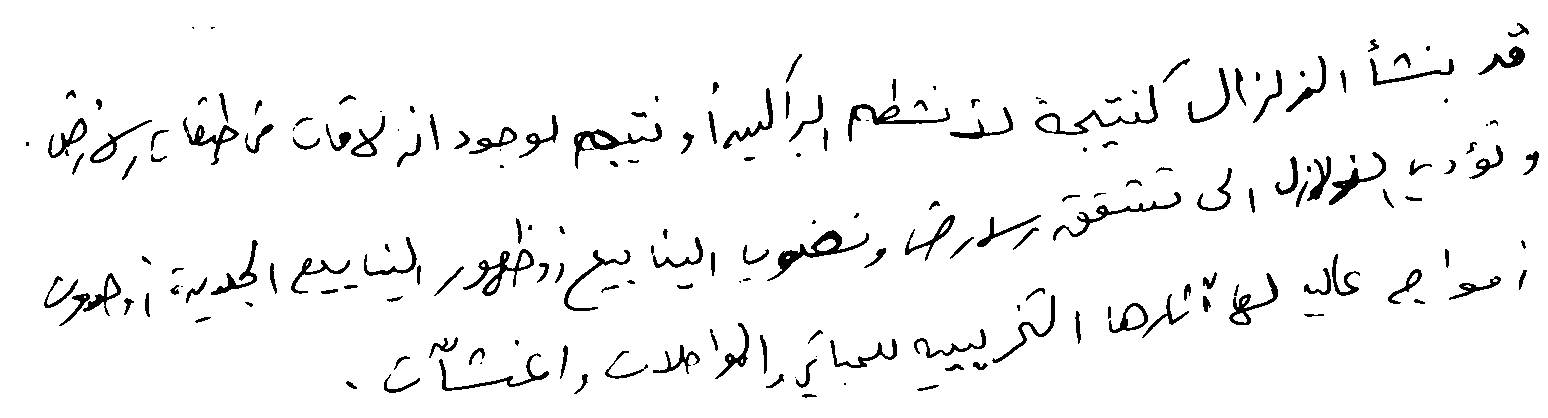 قد ينشأ الزلزال كنتيجة لأنشطه البراكين أو نتيجه لوجود انزلاقات في طبقات الارض .
وتؤدي الزلازل الى تشقق الارض ونضوب الينابيع أو ظهور الينابيع الجديدة أو حدوث
أمواج عاليه لها آثارها التخريبيه للمباني والمواصلات والمنشآت .